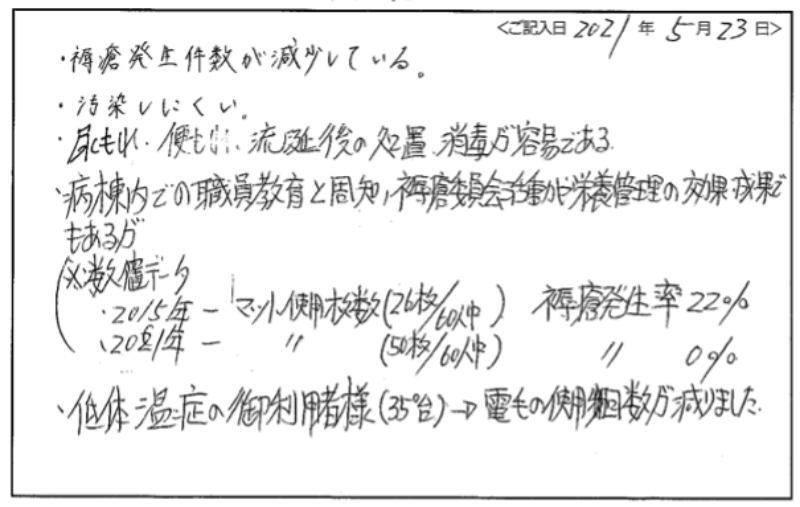 <ご記入日 2021 年 5月 23 日>
・褥瘡発生件数が減少している。
・汚染しにくい。
・尿もれ、便もれ、流延後の処置、消毒が容易である
・病棟内での職員教育と周知、褥瘡委員会活動が栄養管理の効果、成果で
もあるが
※数値データ
・2015年 ー マット使用枚数(26枚/60人中) 褥瘡発生率22%
・2021年 ー 〃 (50枚/60人中) 〃 0%
・低体温症の御利用者様(35°台)→電毛の使用回数が減りました。